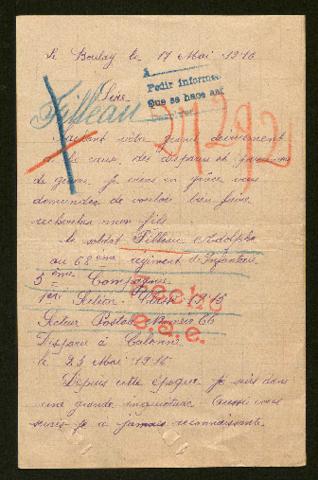 Le Boulay le 17 Mai 1916
A
Pedir informes
Que se hace así
Sire
Filleau
21292
Sachant votre grand dévouement
à la cause des disparus et prisonniers
de guerre je viens en grâce vous
demander de vouloir bien faire
rechercher mon fils
le soldat Filleau Adolphe
au 68eme régiment d'Infanterie
5eme Compagnie
1ère Section
Hecho
Secteur Postal Numéro 66
e.a.e.
Disparu à Calonne
le 23 Mai 1915
Depuis cette époque je suis dans
une grande inquiétude Aussi vous
serais je à jamais reconnaissante.